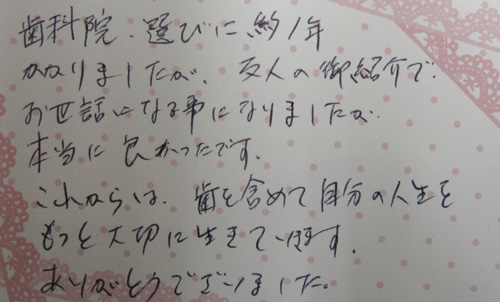 歯科院、選びに約1年
かかりましたが、友人の御紹介で
お世話になる事になりましたが
本当に良かったです。
これからは、歯を含めて自分の人生を
もっと大切に生きていきます。
ありがとうでございました。